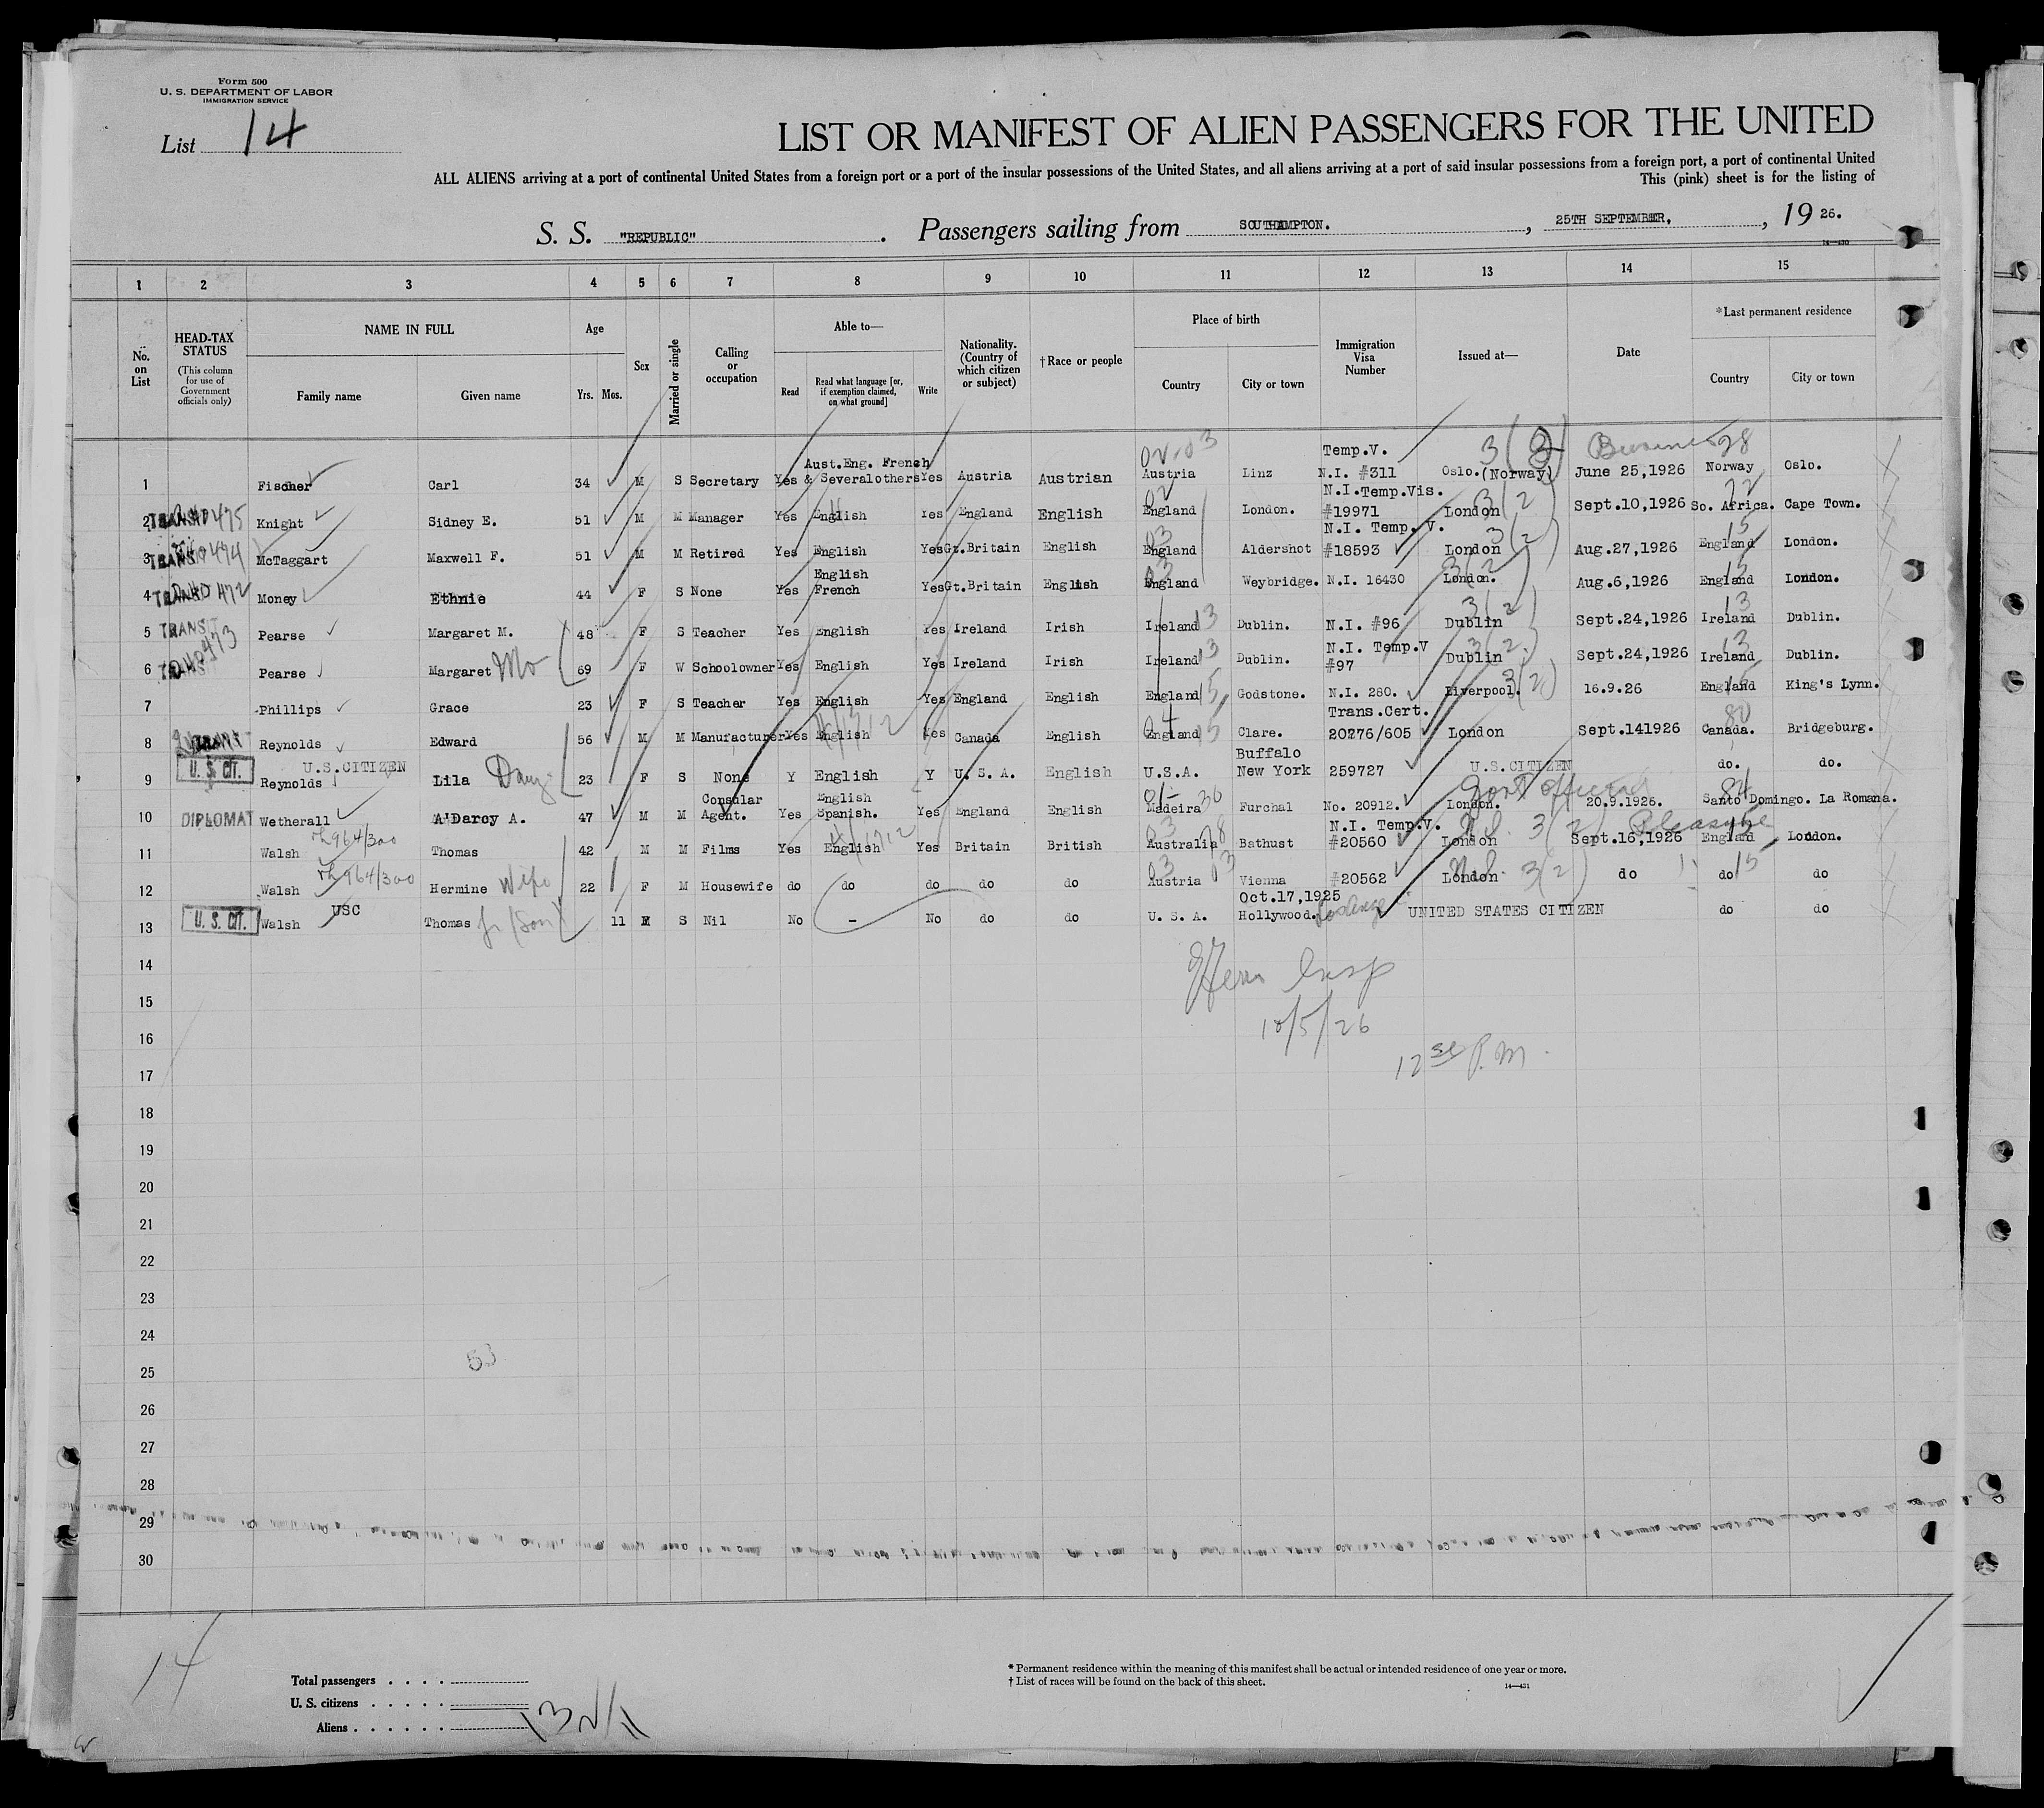 Form 500
U. S. DEPARTMENT OF LABOR
IMMIGRATION SERVICE
List 14
LIST OR MANIFEST OF ALIEN PASSENGERS FOR THE UNITED
ALL ALIENS arriving at a port of continental United States from a foreign port or a port of the insular possessions of the United States, and all aliens arriving at a port of said insular possessions from a foreign port, a port of continental United
This (pink) sheet is for the listing of
S. S. "REPUBLIC". Passengers sailing from SOUTHAMPTON., 25TH SEPTEMBER,, 19 26.
14—430
1 2 3 4 5 6 7 8 9 10 11 12 13 14 15
No. on List
HEAD-TAX STATUS (This column for use of Government officials only)
NAME IN FULL Family name Given name
Age Yrs. Mos.
Sex
Married or single
Calling or occupation
Able to— Read Read what language [or, if exemption claimed, on what ground] Write
Nationality. (Country of which citizen or subject)
†Race or people
Place of birth Country City or town
Immigration Visa Number
Issued at—
Date
*Last permanent residence Country City or town
1 Fischer Carl 34 M S Secretary Yes Aust.Eng. French & Several others Yes Austria Austrian Austria Linz Temp.V. N.I. #311 Oslo.(Norway) June 25,1926 Norway Oslo.
2 TRANSIT Knight Sidney E. 51 M M Manager Yes English Yes England English England London. N.I.Temp.Vis. #19971 London 3(2) Sept.10,1926 So. Africa. Cape Town.
3 TRANSIT McTaggart Maxwell F. 51 M M Retired Yes English Yes Gt.Britain English England Aldershot N.I. Temp. V. #18593 London 3(2) Aug.27,1926 England London.
4 TRANSIT Money Ethnie 44 F S None Yes English French Yes Gt.Britain English England Weybridge. N.I. 16430 London. 3(2) Aug.6,1926 England London.
5 TRANSIT Pearse Margaret M. 48 F S Teacher Yes English Yes Ireland Irish Ireland 13 Dublin. N.I. #96 Dublin 3(2) Sept.24,1926 Ireland 13 Dublin.
6 TRANSIT Pearse Margaret Mo 69 F W Schoolowner Yes English Yes Ireland Irish Ireland 13 Dublin. N.I. Temp.V #97 Dublin 3(2) Sept.24,1926 Ireland 13 Dublin.
7 Phillips Grace 23 F S Teacher Yes English Yes England English England 15 Godstone. N.I. 280. Liverpool. 3(2) 16.9.26 England King's Lynn.
8 Reynolds Edward 56 M M Manufacturer Yes English Yes Canada English England Clare. Trans.Cert. 20276/605 London Sept.141926 Canada. 80 Bridgeburg.
9 U. S. CIT. U.S.CITIZEN Reynolds Lila 23 F S None Y English Y U. S. A. English U.S.A. Buffalo New York 259727 U.S.CITIZEN do. do.
10 DIPLOMAT Wetherall A'Darcy A. 47 M M Consular Agent. Yes English Spanish. Yes England English Madeira Furchal No. 20912. London. Govt Official 20.9.1926. Santo Domingo. La Romana.
11 Walsh Thomas 42 M M Films Yes English Yes Britain British Australia Bathust N.I. Temp.V. #20560 London 3(2) Pleasure Sept.16,1926 England London.
12 Walsh Hermine Wife 22 F M Housewife do do do do do Austria Vienna #20562 London 3(2) do do 15 do
13 U. S. CIT. USC Walsh Thomas Jr (Son) 11 S Nil No - No do do U. S. A. Oct.17,1925 Hollywood. UNITED STATES CITIZEN do do
14
Insp
15
10/5/26
16
P.M.
17
18
19
20
21
22
23
24
53
25
26
27
28
29
30
14
Total passengers
U. S. citizens
Aliens
* Permanent residence within the meaning of this manifest shall be actual or intended residence of one year or more.
† List of races will be found on the back of this sheet.
14—431